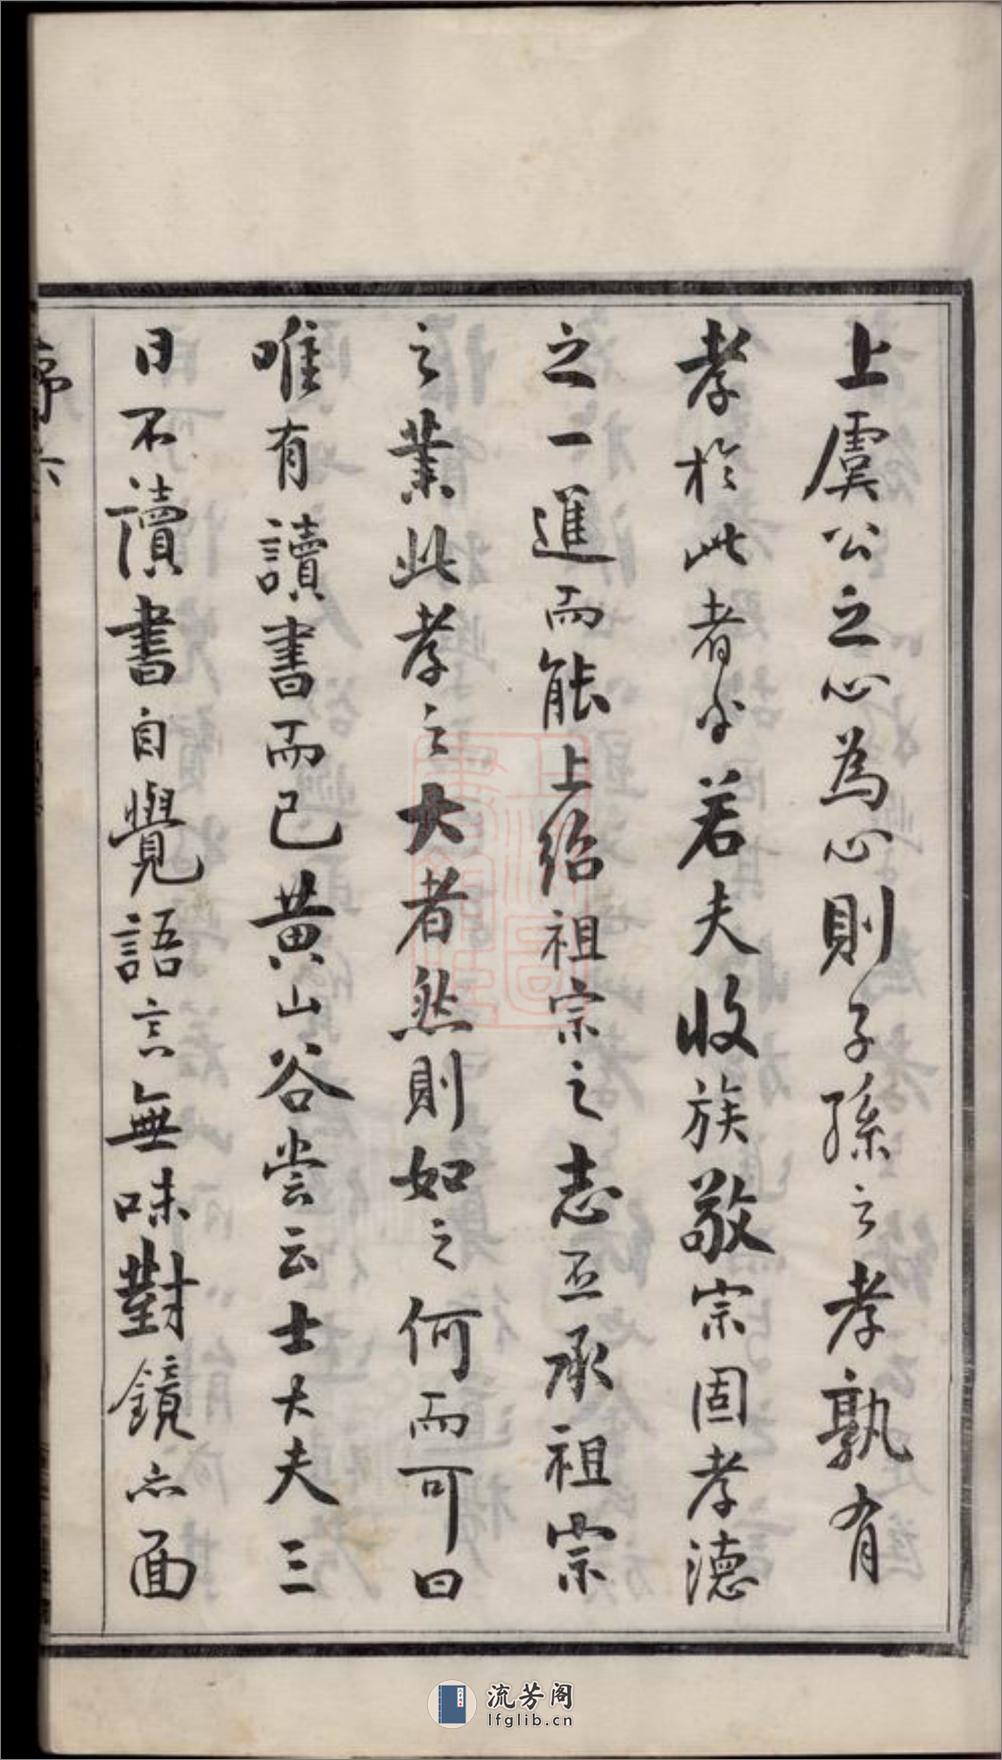 上虞公之心為心則子孫之孝孰有
孝於此者乎若夫收族敬宗固孝德
之一進而能上紹祖宗之志丕承祖宗
之業此孝之大者然則如之何而可曰
唯有讀書而已黃山谷嘗云士大夫三
日不讀書自覺語言無味對鏡亦面
序六
流芳阁
lfglib.cn